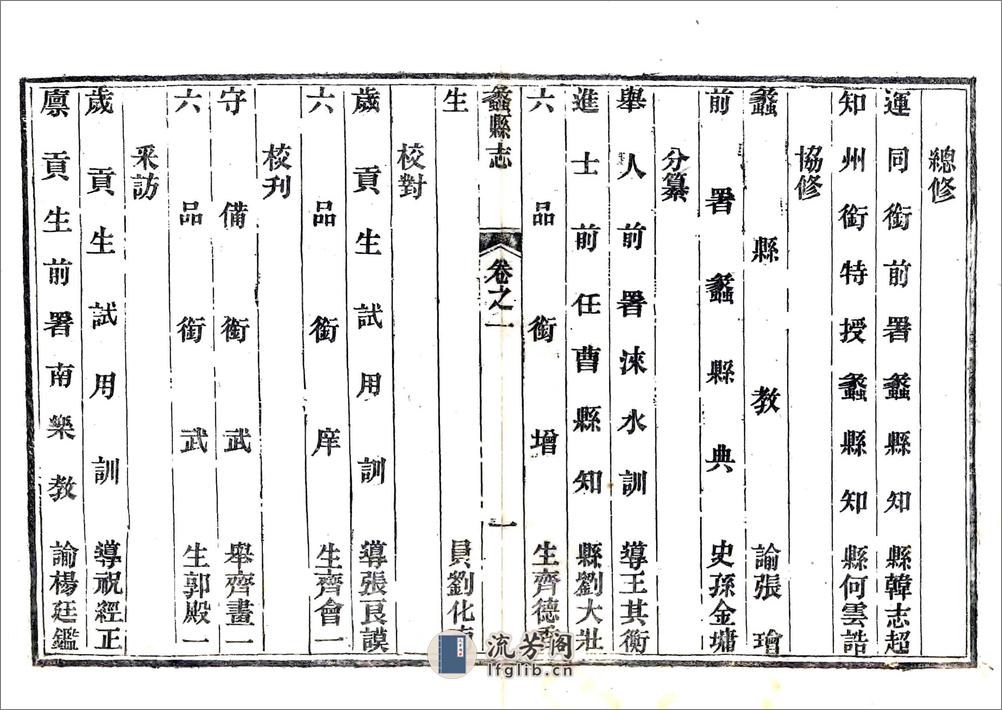 總修
運同銜前署蠡縣知縣韓志超
知州銜特授蠡縣知縣何雲誥
協修
蠡縣教諭張璿
前署蠡縣典史孫金墉
分纂
舉人前署淶水訓導王其衡
進士前任曹縣知縣劉大壯
六品銜增生齊德
蠡縣志 卷之一 一
生員劉化
校對
歲貢生試用訓導張良謨
校刊
六品銜庠生齊會一
守備銜武舉齊畫一
六品銜武生郭殿一
采訪
歲貢生試用訓導祝經正
廩貢生前署南樂教諭楊廷鑑
流芳阁
lfglib.cn